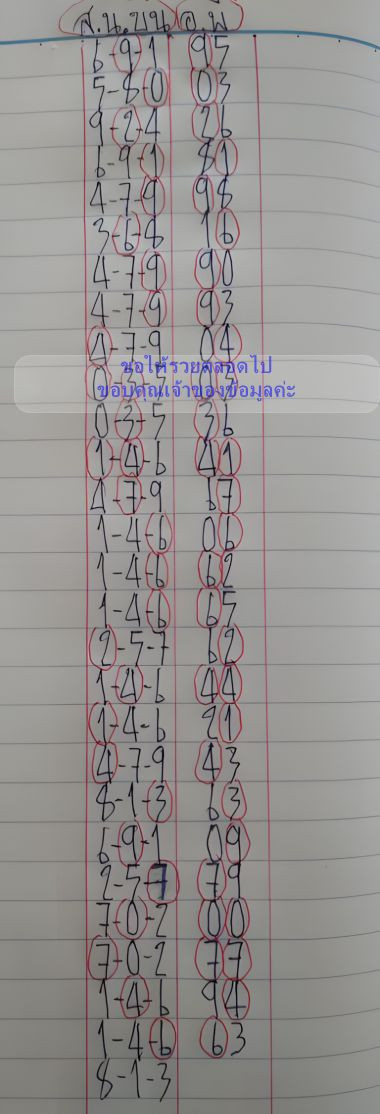 ส.น.ขน อ.พ
6-9-1 95
5-8-0 03
9-2-4 26
6-9-1 81
4-7-9 98
3-6-8 16
4-7-9 90
4-7-9 93
4-7-9 04
ขอให้รวยตลอดไป
0-3-5
ขอบคุณเจ้าของข้อมูลค่ะ
0-3-5 36
1-4-6 41
4-7-9 67
1-4-6 06
1-4-6 62
1-4-6 65
2-5-7 62
1-4-6 44
1-4-6 21
4-7-9 43
8-1-3 63
6-9-1 09
2-5-7 79
7-0-2 00
7-0-2 77
1-4-6 94
1-4-6 63
8-1-3